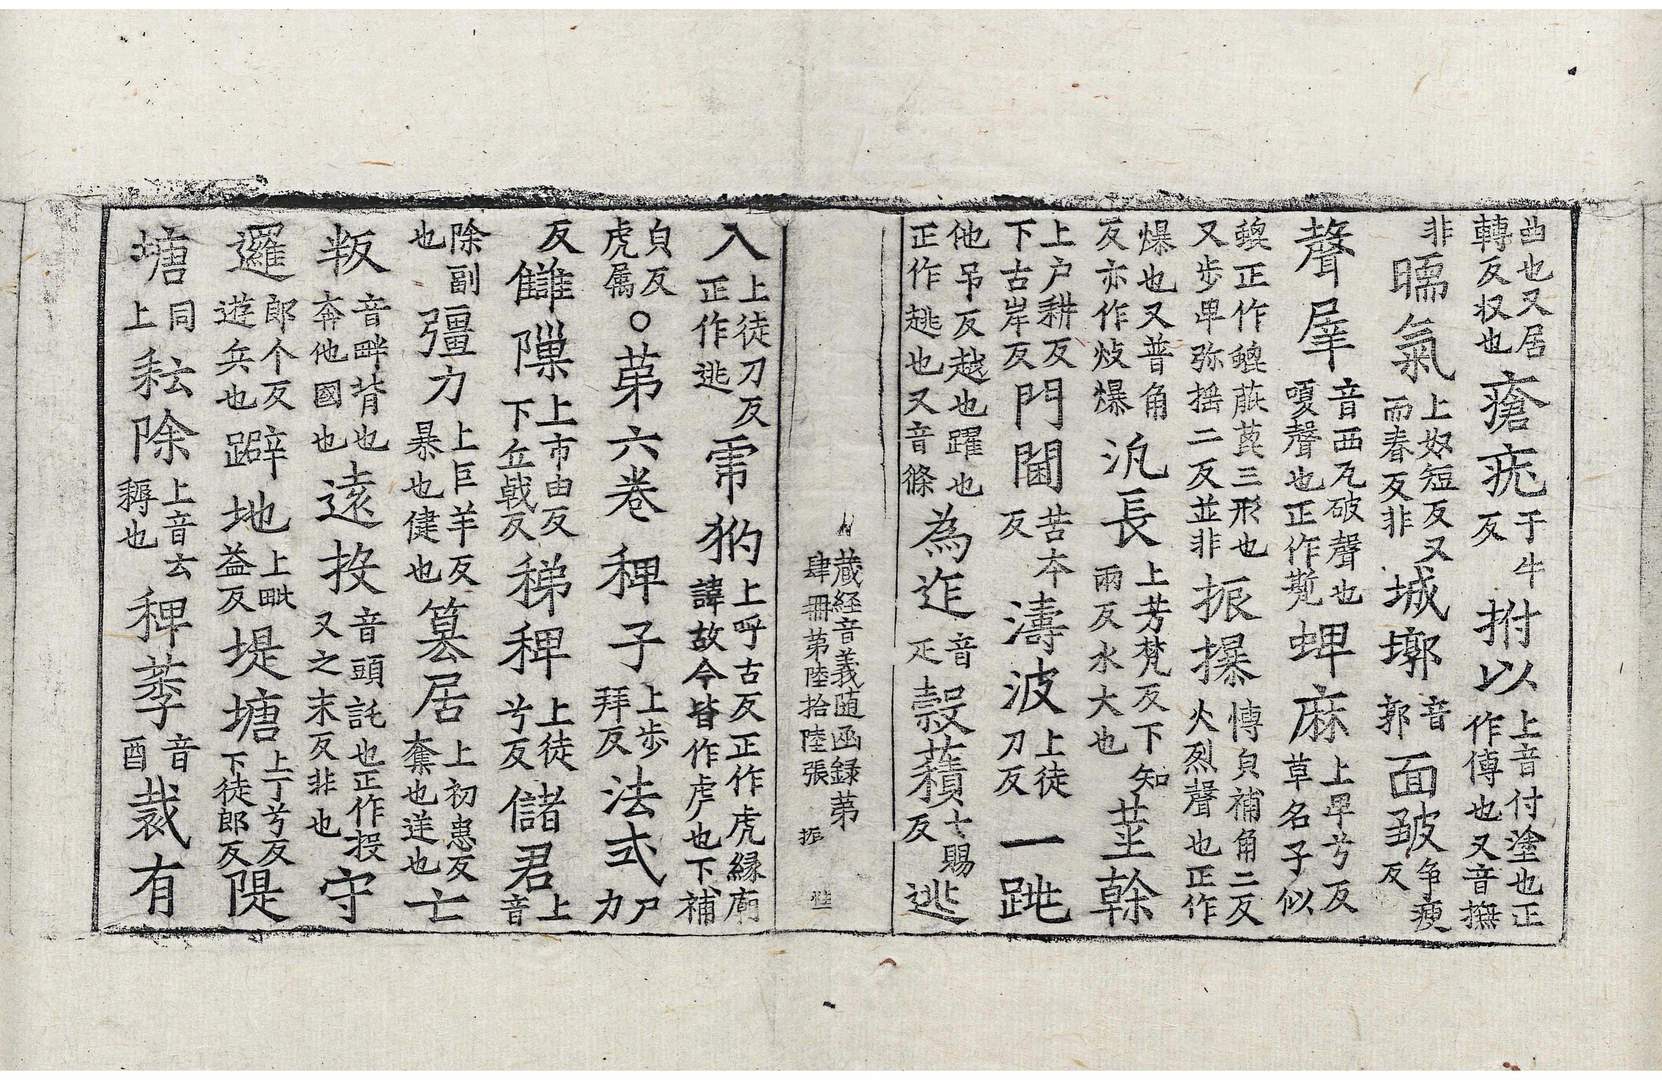 曲也又居轉反収也瘡疣于牛反拊以上音付塗也正作傅也又音撫
非𣉙氣上奴短反又而春反非城墎音郭面皺爭瘦反
聲㞕音西瓦破聲也嗄聲也正作㽄蜱麻上卑兮反草名子似
螕正作螕蓖萞三形也又步卑弥揺二反並非振㩧愽貟補角二反火烈聲也正作
爆也又普角反亦作㶿爆汎長上芳梵反下知兩反水大也莖幹
上户耕反下古岸反門閫苦本反濤波上徒刀反一跳
他吊反越也躍也正作趒也又音條為迮音疋㝅積十賜反逃
藏経音義随函録第肆冊第陸拾陸張 振
入上徒刀反正作逃虖豞上呼古反正作虎縁廟諱故今皆作虖也下補
貟反虎属○第六卷稗子上步拜反法式尸力
反讎隟上市由反下丘戟反稊稗上徒兮反儲君上音
除副也彊力上巨羊反暴也健也篡居上初患反奪也逆也亡
叛音畔背也奔他國也遠投音頭託也正作投又之末反非也守
邏郎个反遊兵也躃地上毗益反堤塘上丁兮反下徒郎反隄
塘同上耘除上音云耨也稗莠音酉裁有